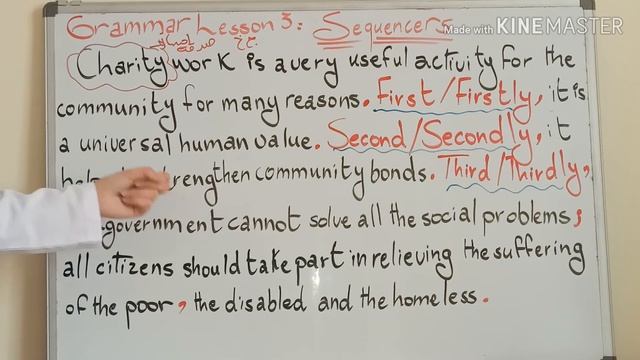 Grammar Lesson 3: Sequencers
Made with KINEMASTER
Charity work is a very useful activity for the
community for many reasons. First/Firstly, it is
a universal human value. Second/Secondly, it
strengthen community bonds. Third/Thirdly,
government cannot solve all the social problems;
all citizens should take part in relieving the suffering
of the poor, the disabled and the homeless.